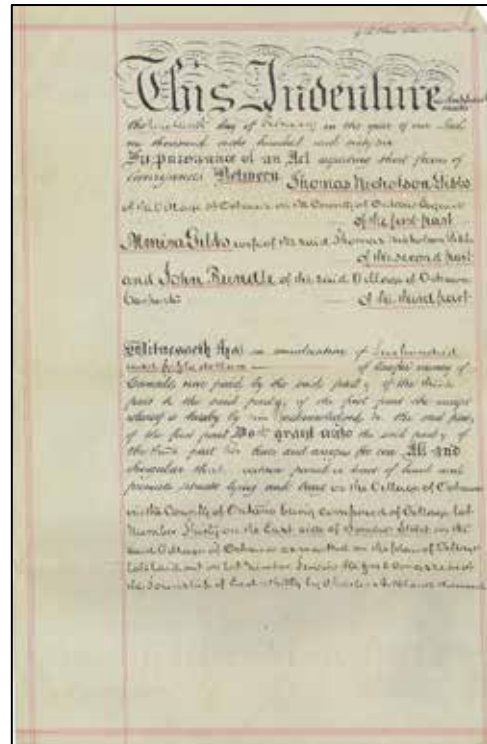 This Indenture made
the day of February in the year of our Lord
one thousand eight hundred and sixty six
In pursuance of an Act respecting short forms of
Conveyances Between Thomas Nicholson Gibbs
of the Village of Oshawa in the County of Ontario Esquire
of the first part
Almira Gibbs wife of the said Thomas Nicholson Gibbs
of the second part
and John Rundle of the said Village of Oshawa
Carpenter of the third part
Witnesseth that in consideration of hundred
and fifty dollars of lawful money of
Canada now paid by the said party of the third
part to the said party of the first part the receipt
whereof is hereby by him acknowledged he the said party
of the first part Doth grant unto the said party of
the third part his heirs and assigns for ever All and
Singular that certain parcel or tract of land and
premises situate lying and being in the Village of Oshawa
in the County of Ontario being composed of Village Lot
Number on the East side of Simcoe Street in the
said Village of Oshawa as marked on the plan of Village
Lots laid out on lot number in the Concession of
the Township of East Whitby by